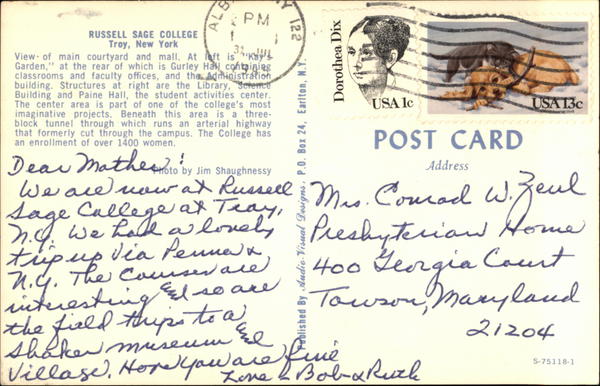 RUSSELL SAGE COLLEGE
Troy, New York
View of main courtyard and mall. At left is "Kay's
Garden," at the rear of which is Gurley Hall containing
classrooms and faculty offices, and the Administration
building. Structures at right are the Library, Science
Building and Paine Hall, the student activities center.
The center area is part of one of the college's most
imaginative projects. Beneath this area is a three-
block tunnel through which runs an arterial highway
that formerly cut through the campus. The College has
an enrollment of over 1400 women.
Photo by Jim Shaughnessy
Dear Mother:
We are now at Russell
Sage College at Troy,
N.Y. We had a lovely
trip up via Penna &
N.Y. The Courses are
interesting and so are
the field trips to a
Shaker museum and
Village. Hope you are fine
Love Bob & Ruth
Published By Audio-Visual Designs, P.O. Box 24, Earlton, N.Y.
PM
122
Dorothea Dix
USA 1c
USA 13c
POST CARD
Address
Mrs. Conrad W. Zeul
Presbyterian Home
400 Georgia Court
Towson, Maryland
21204
S-75118-1